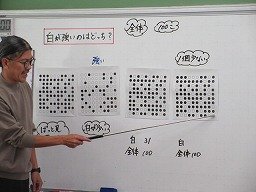 白が強いのはどっち？
全体
100こ
強い
1個少ない
ぱっと見
白が多い
白 31
全体 100
白
全体 100